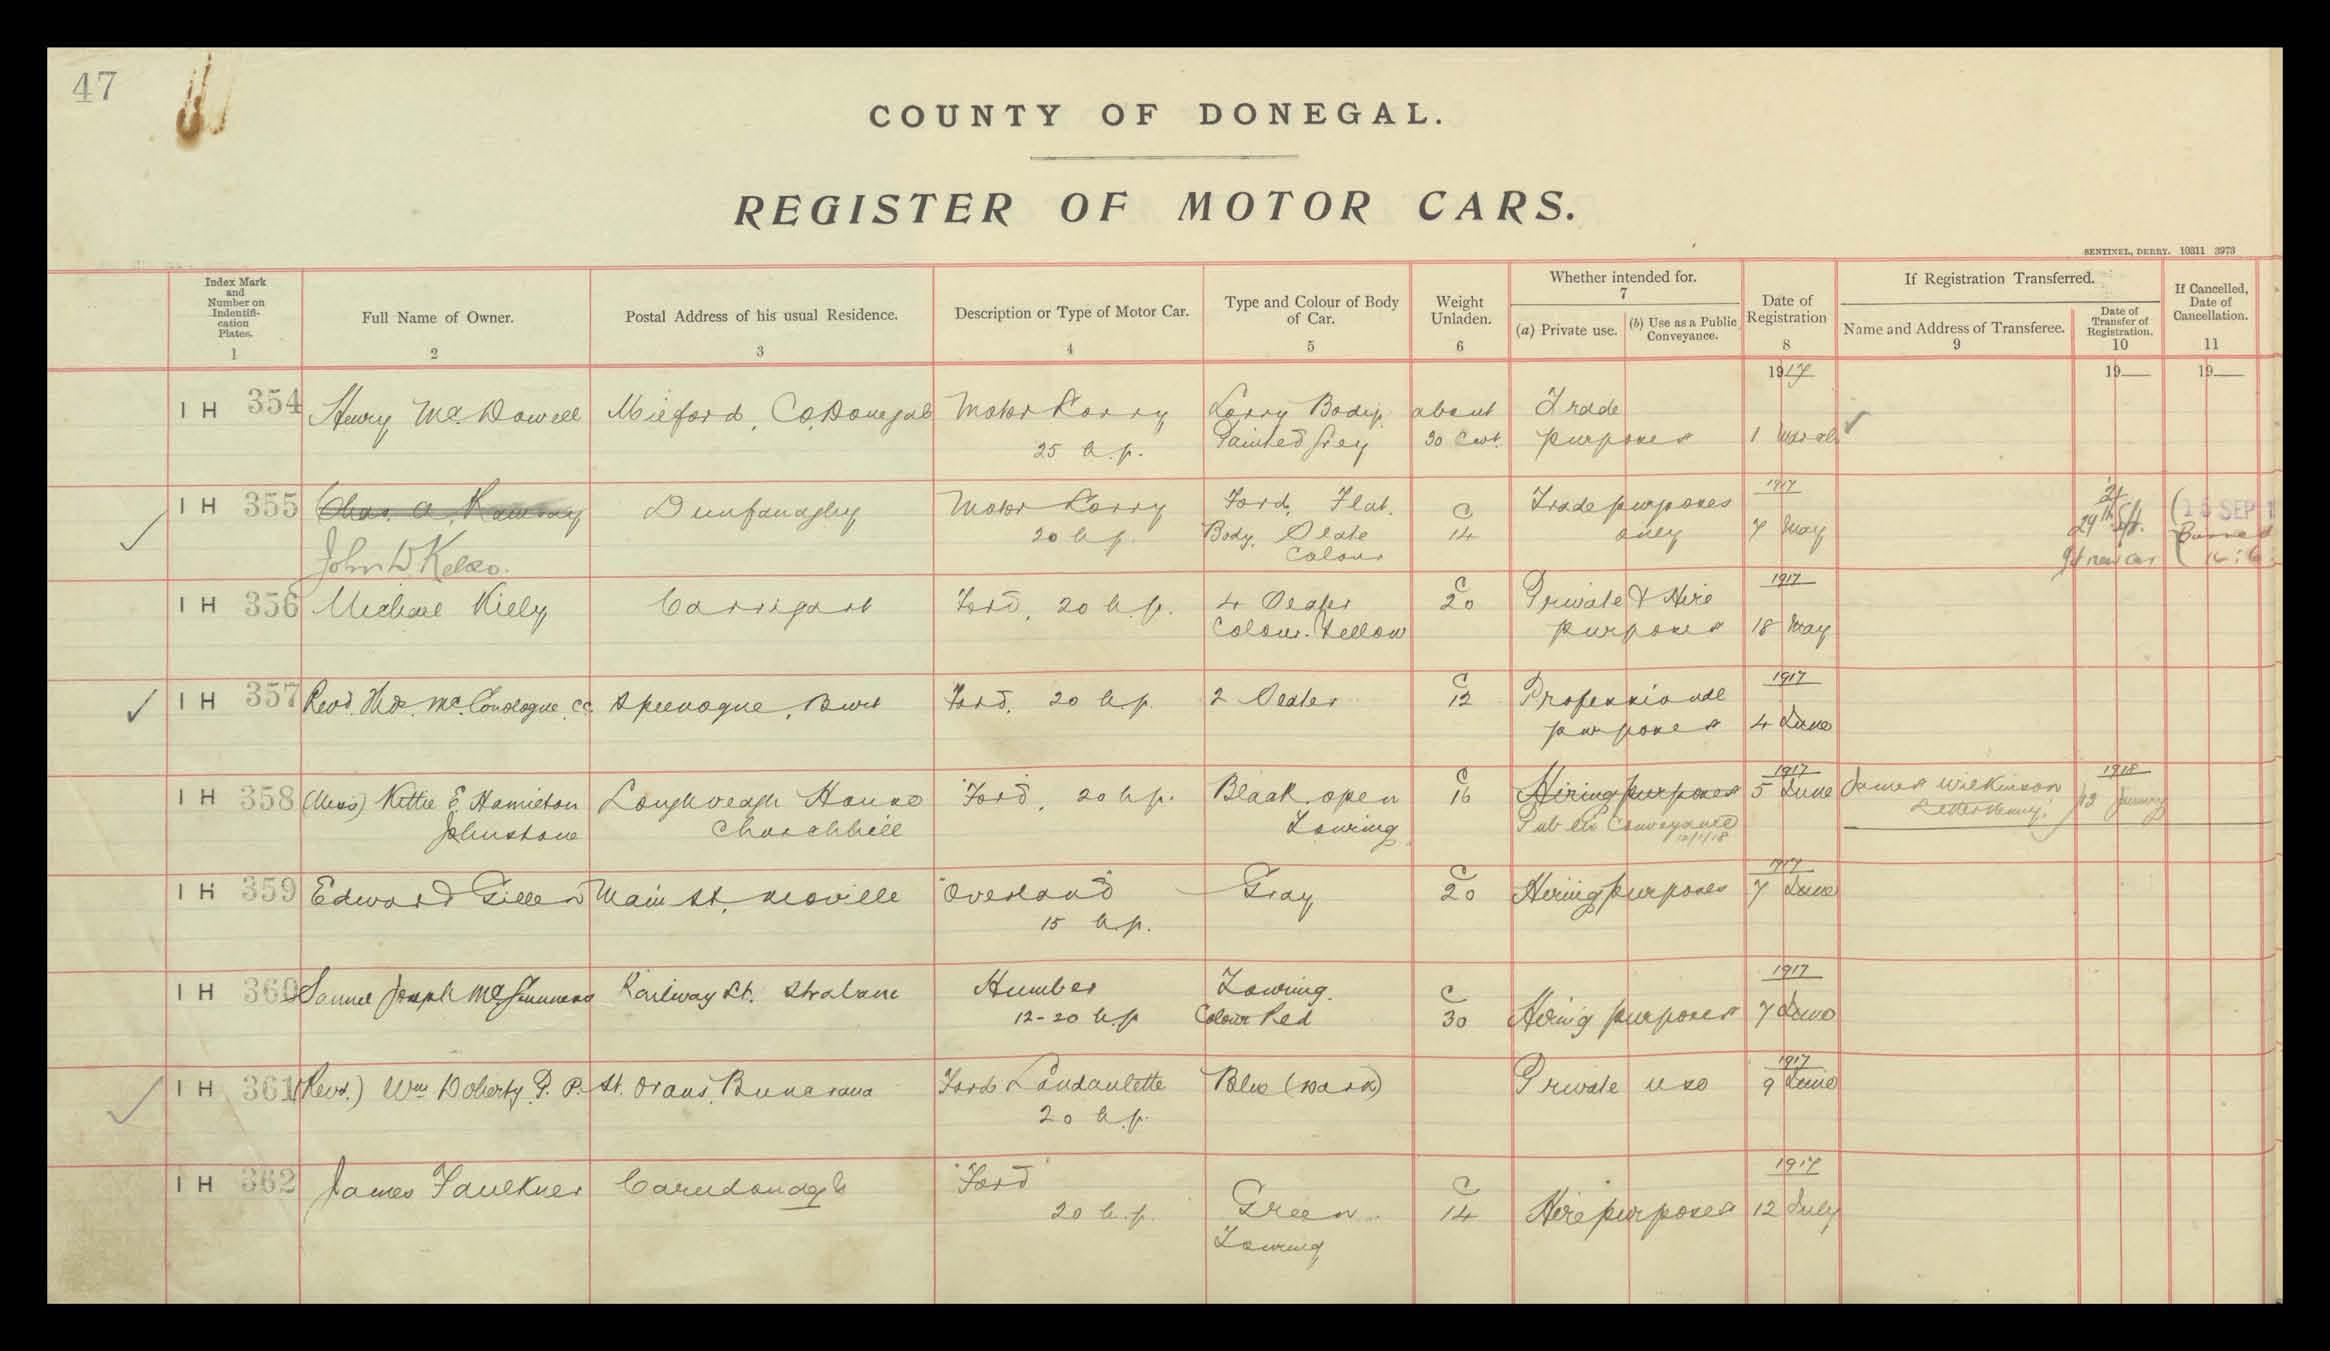 47
COUNTY OF DONEGAL.
REGISTER OF MOTOR CARS.
SENTINEL, DERRY. 10311 3973
Index Mark and Number on Indentifi-cation Plates. 1
Full Name of Owner. 2
Postal Address of his usual Residence. 3
Description or Type of Motor Car. 4
Type and Colour of Body of Car. 5
Weight Unladen. 6
Whether intended for. 7
(a) Private use.
(b) Use as a Public Conveyance.
Date of Registration 8
If Registration Transferred.
Name and Address of Transferee. 9
Date of Transfer of Registration. 10
If Cancelled, Date of Cancellation. 11
1917 19 19
IH 354 Henry McDowell Milford, Co. Donegal Motor Lorry Lorry Body. about Trade
25 h.p. Painted Grey 30 Cwt. purposes 1
1917
IH 355 Chas. A. Ramsay Dunfanaghy Motor Lorry Ford, Flat. C Trade purposes
20 h.p. Body. Slate 14 only 7 May 29th
Colour
John D Kelso. new car
15 SEP
1917
IH 356 Michael Kielly Carrigart Ford, 20 h.p. 4 Seater C 20 Private & Hire
Colour. Yellow purposes 18 May
1917
IH 357 Revd. McConologue, CC Speenogue, Burt Ford, 20 h.p. 2 Seater C 12 Professional
purposes 4 June
1917 1918
IH 358 (Miss) Kittie E Hamilton Loughveagh House "Ford", 20 h.p. Black open C 16 Hiring purposes 5 June James Wilkinson 12 January
Johnstone Churchhill Touring Public Conveyance Letterkenny.
12/1/18
1917
IH 359 Edward Gillen Main St, Moville "Overland" Gray C 20 Hiring purposes 7 June
15 h.p.
1917
IH 360 Samuel Joseph Railway St. Strabane Humber Touring. C
12-20 h.p Colour Red 30 Hiring purposes 7 June
1917
IH 361 (Revd.) Wm Doherty P.P. St. Orans, Buncrana Ford Landaulette Blue (Dark) Private use 9 June
20 h.p.
1917
IH 362 James Faulkner Carndonagh "Ford" C
20 h.p. Green 14 Hire purposes 12 July
Touring